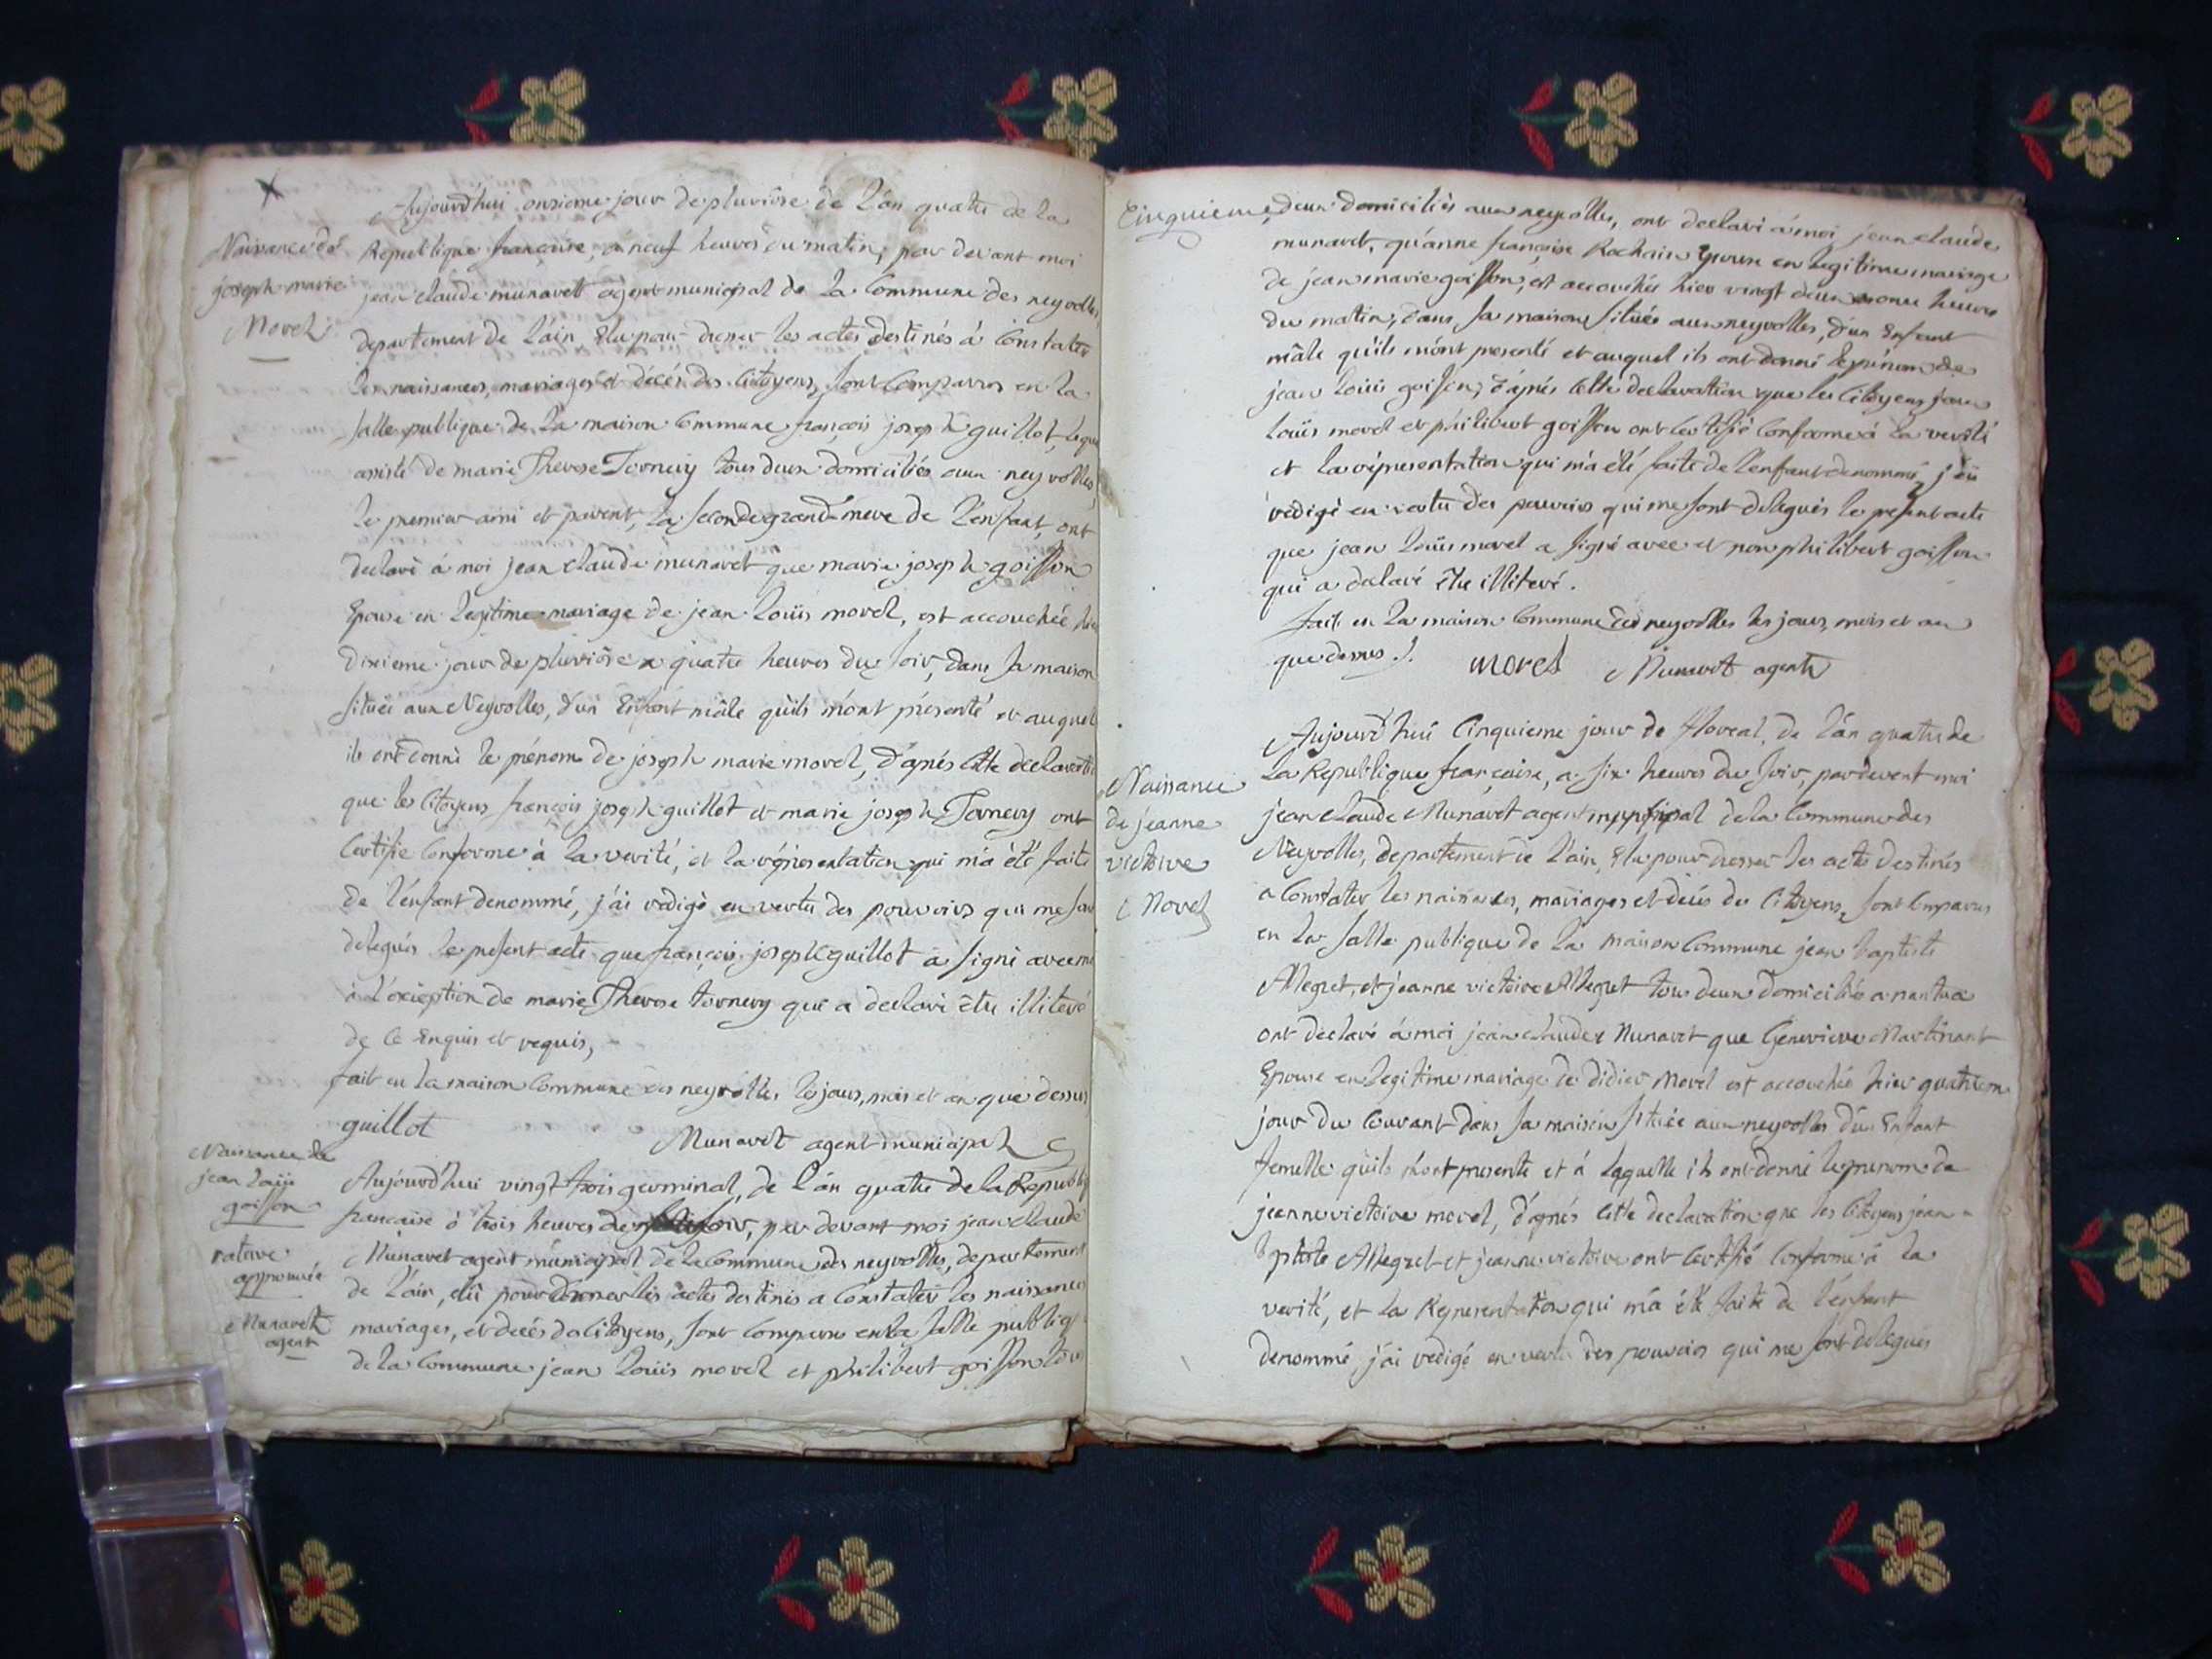 Aujourd'hui onzieme jour de pluviôse de l'an quatre de la
Naissance de
joseph marie
Morel
Republique francaise, à neuf heures du matin, par devant moi
jean claude munavet agent municipal de la Commune des neyrolles,
departement de l'ain, Elu pour dresser les actes destinés à Constater
les naissances, mariages et décés des Citoyens, sont Comparus en la
salle publique de la maison Commune françois joseph guillot, lequel
assisté de marie Therese Tornery tous deux domiciliés aux neyrolles,
le premier ami et parent, la seconde grand-mere de l'enfant, ont
declaré à moi jean claude munavet que marie joseph goisson
Epouse en legitime mariage de jean louis morel, est accouchée hier
dixieme jour de pluviôse a quatre heures du soir, dans sa maison
située aux Neyrolles, d'un Enfant mâle qu'ils m'ont présenté et auquel
ils ont donné le prénom de joseph marie morel, d'aprés cette declaration
que les Citoyens françois joseph guillot et marie joseph Tornery ont
Certifié Conforme à la verité, et la répresentation qui m'a été faite
de l'enfant denommé, j'ai redigé en vertu des pouvoirs qui me sont
delegués le present acte que françois joseph guillot a signé avec moi
à l'exception de marie Therese tornery que a declaré être illiteré
de ce Enquis et requis,
fait en la maison Commune des neyrolles les jours, mois et an que dessus
guillot
Munavet agent municipal
Naissance de
jean louis
goisson
Aujourd'hui vingt trois germinal, de l'an quatre de la Republiq
francaise à trois heures de soir, par devant moi jean claude
rature
approuvée
Munavet
agent
Munavet agent municipal de la Commune des neyrolles, departement
de l'ain, elû pour dresser les actes destinés a Constater les naissances
mariages, et decés des Citoyens, sont Comparus en la salle publiq
de la Commune jean louis morel et philibert goisson tous
Cinquieme
deux domiciliés aux neyrolles, ont declaré à moi jean claude
munavet, qu'anne françoise Rochaix Epouse en legitime mariage
de jean marie goisson, est accouchée hier vingt deux a onze heures
du matin, dans sa maison située aux neyrolles, d'un Enfant
mâle qu'ils m'ont presenté et auquel ils ont donné le prénom de
jean louis goisson, d'aprés cette declaration que les Citoyens jean
louis morel et philibert goisson ont Certifié Conforme à la verité
et la répresentation qui m'a été faite de l'enfant denommé, j'ai
redigé en vertu des pouvoirs qui me sont delegués le present acte
que jean louis morel a signé avec et non philibert goisson
qui a declaré être illiteré.
fait en la maison Commune des neyrolles les jours, mois et an
que dessus.
morel Munavet agent
Naissance
de jeanne
victoire
Morel
Aujourd'hui Cinquieme jour de floreal, de l'an quatre de
la Republique française, a six heures du soir, par devant moi
jean claude Munavet agent municipal de la Commune des
Neyrolles, departement de l'ain, Elu pour dresser les actes destinés
a Constater les naissances, mariages et décés des Citoyens, sont Comparus
en la salle publique de la maison Commune jean baptiste
Allegret, et jeanne victoire Allegret tous deux domiciliés a nantua
ont declaré à moi jean claude Munavet que Genevieve Martinant
Epouse en legitime mariage de didier Morel est accouchée hier quatrieme
jour du Courant dans sa maison située aux neyrolles d'un Enfant
femelle qu'ils m'ont presenté et à laquelle ils ont donné le prenom de
jeanne victoire morel, d'aprés cette declaration que les Citoyens jean
bptiste Allegret et jeanne victoire ont Certifié Conforme à la
verité, et la Représentation qui m'a été faite de l'enfant
denommé j'ai redigé en vertu des pouvoirs qui me sont delegués